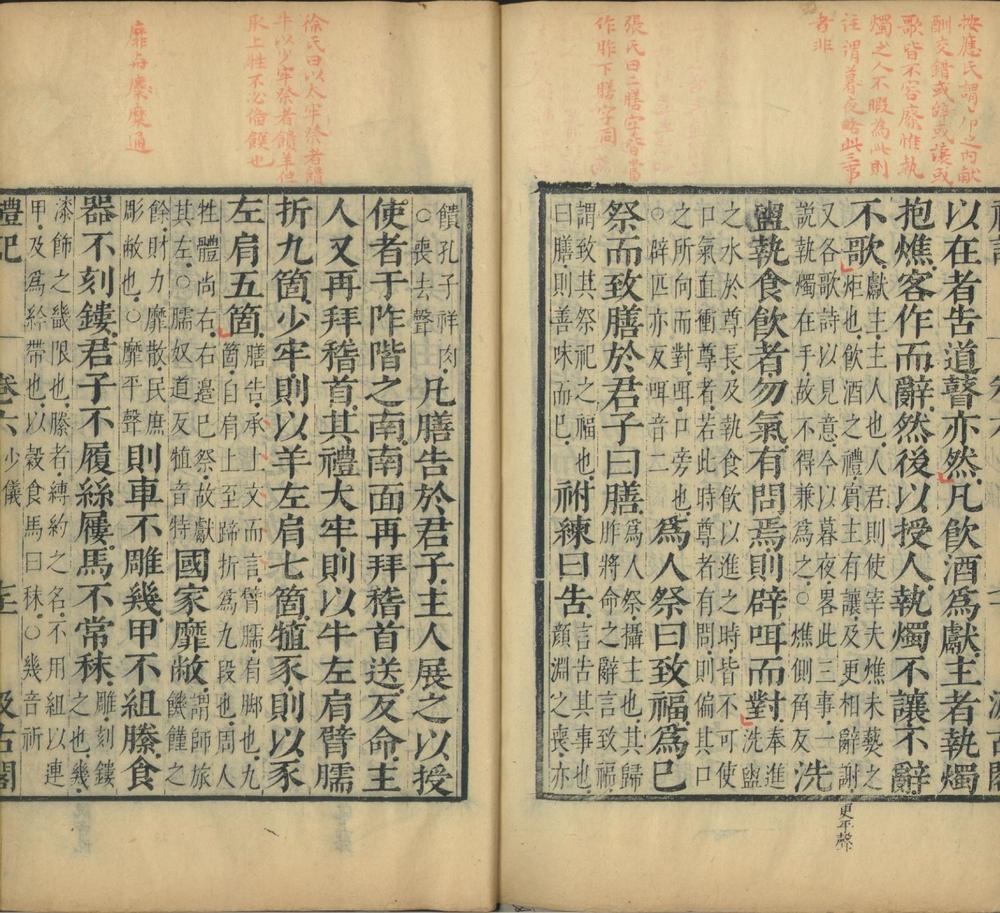 按應氏謂一卯之內獻
酬交錯或辭或讓或
歌皆不容廢惟執
燭之人不暇為此則
注謂暮夜略此三事
者非
張氏曰二膳字皆當
作胙下膳字同
以在者告道瞽亦然凡飮酒爲獻主者執燭
抱燋客作而辭然後以授人執燭不讓不辭
不歌獻主主人也人君則使宰夫燋未爇之
炬也飮酒之禮賓主有讓及更相辭謝
又各歌詩以見意今以暮夜畧此三事一
說執燭在手故不得兼爲之○燋側角反洗
盥執食飮者勿氣有問焉則辟咡而對奉進
洗盥
之水於尊長及執食飮以進之時皆不可使
口氣直衝尊者若此時尊者有問則偏其口
之所向而對咡口旁也
○辟匹亦反咡音二爲人祭曰致福爲已
祭而致膳於君子曰膳爲人祭攝主也其歸
胙將命之辭言致福
謂致其祭祀之福也
曰膳則善味而巳祔練曰告言告其事也
顏淵之喪亦
更平聲
徐氏曰以太牢祭者饋
牛以少牢祭者饋羊但
取上牲不必倫饌也
靡與糜縻通
饋孔子祥肉
○喪去聲凡膳告於君子主人展之以授
使者于阼階之南南面再拜稽首送反命主
人又再拜稽首其禮大牢則以牛左肩臂臑
折九箇少牢則以羊左肩七箇犆豕則以豕
左肩五箇膳告承上文而言臂臑肩脚也九
箇自肩上至蹄折爲九段也周人
牲體尚右右邊已祭故獻
其左○臑奴道反犆音特國家靡敝謂師旅
饑饉之
餘財力靡散民庶
彫敝也○靡平聲則車不雕幾甲不組縢食
器不刻鏤君子不履絲屨馬不常秣雕刻鏤
之也幾
漆飾之畿限也縢者縛約之名不用組以連
甲及爲紟帶也以穀食馬曰秣○幾音祈
禮記 卷六少儀 汲古閣